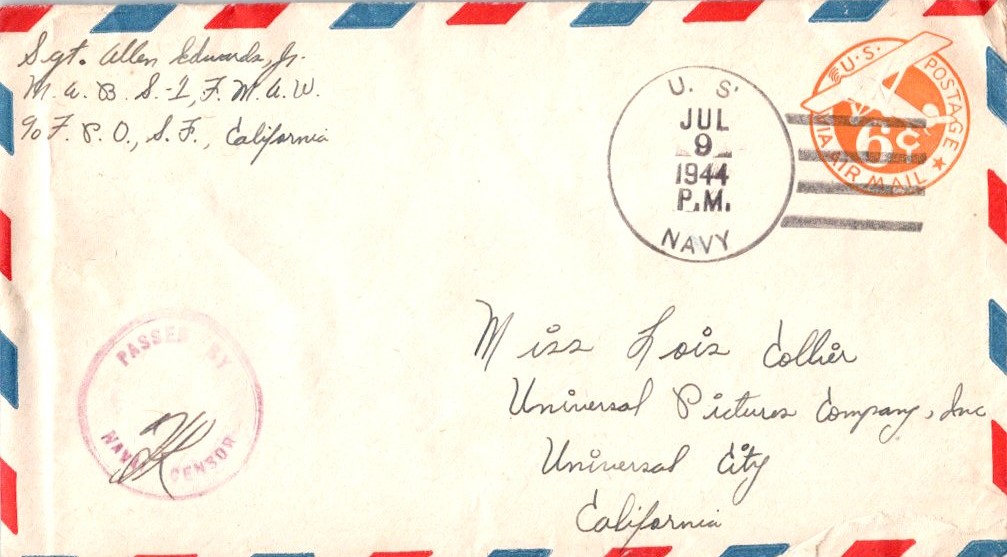 Sgt. Allen Edwards, Jr.
M. A. B. S.-1, F. M. A. W.
℅ F. P. O., S. F., California
U. S.
JUL
9
1944
P.M.
NAVY
U.S. POSTAGE
6¢
VIA AIR MAIL
PASSED BY
NAVAL CENSOR
Miss Lois Collier
Universal Pictures Company, Inc
Universal City
California